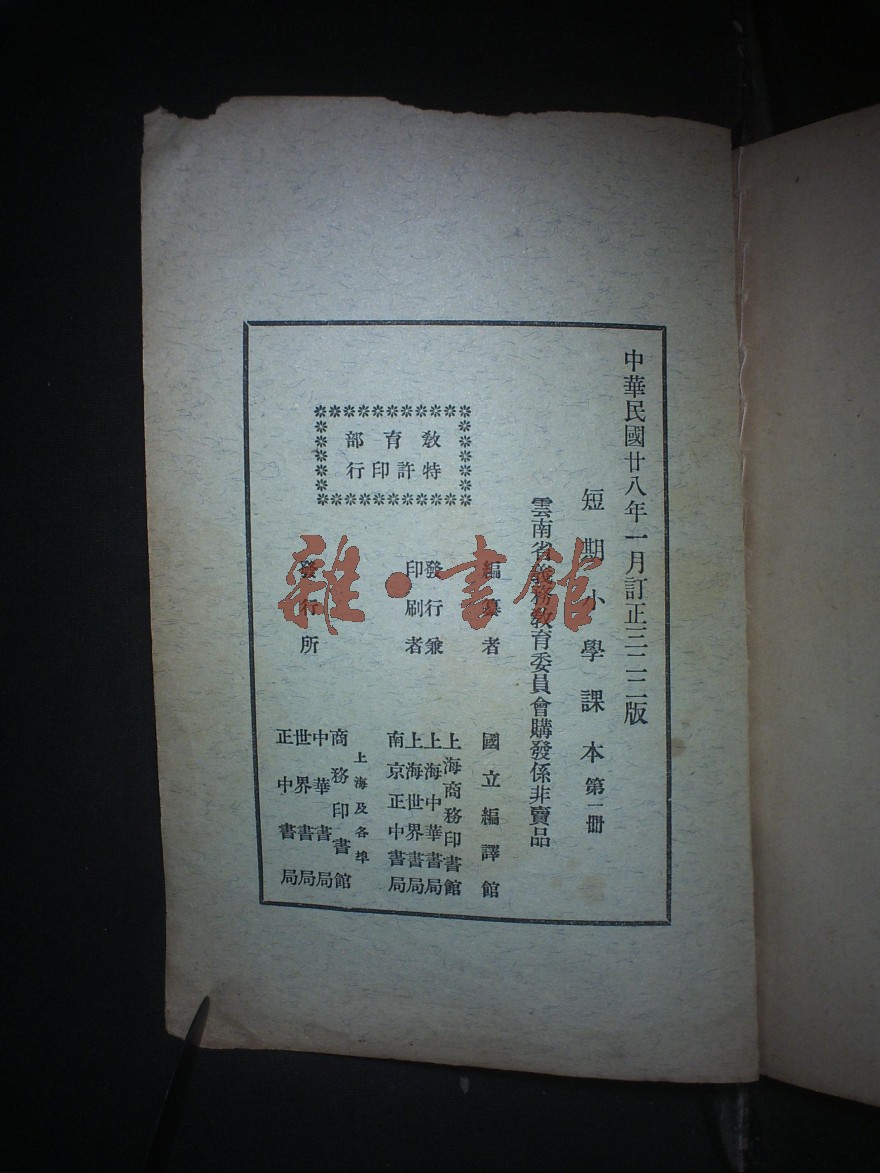 中華民國廿八年一月訂正三二二版
短期小學課本 第一冊
雲南省義務教育委員會購發係非賣品
教育部
特許印行
編纂者
國立編譯館
發行兼
印刷者
上海商務印書館
上海中華書局
上海世界書局
南京正中書局
發行所
上海及各埠
商務印書館
中華書局
世界書局
正中書局
雜·書館